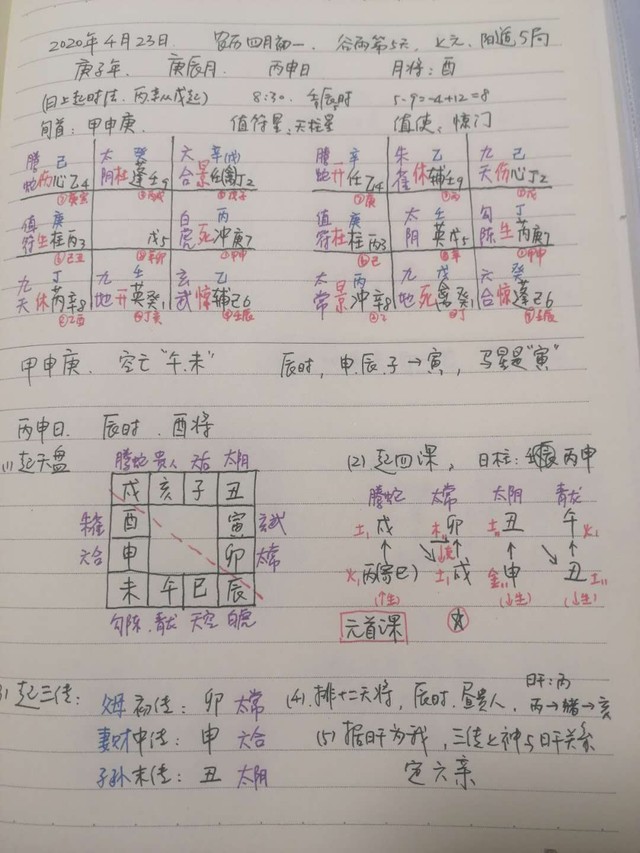 2020年4月23日. 农历四月初一、谷雨第5天、上元、阳遁5局
庚子年、 庚辰月、 丙申日 月将：酉
(日上起时法、丙辛从戊起) 8:30. 壬辰时 5-9=-4+12=8
旬首：甲申庚. 值符星、天柱星 值使、惊门
腾 己 太 癸 六 辛(戊) 腾 辛 朱 乙 九 己
蛇 伤 心 乙4 阴 杜 蓬 壬9 合 景 任 丁2 蛇 开 任 乙4 雀 休 辅 壬9 天 伤 心 丁2
值 庚 白 丙 值 庚 太 壬 勾 丁
符 生 柱 丙3 戊5 虎 死 冲 庚7 符 杜 柱 丙3 阴 英 戊5 陈 生 芮 庚7
九 丁 九 壬 玄 乙 太 丙 九 戊 六 癸
天 休 芮 辛8 地 开 英 癸1 武 惊 辅 己6 常 景 冲 辛8 地 死 禽 癸1 合 惊 蓬 己6
甲申庚、 空亡“午、未” 辰时，申.辰.子→寅，马星是“寅”
丙申日、 辰时、酉将
(1)起天盘 腾蛇 贵人 天后 太阴 (2)起四课， 日柱：丙申
戌 亥 子 丑 腾蛇 太常 太阴 青龙
朱雀 酉 寅 玄武 土 戌 木 卯 土 丑 午 火
六合 申 卯 太常 火 丙(寄巳) 土 戌 金 申 丑 土
未 午 巳 辰 (↑生) (↓生) (↓生)
勾陈、青龙 天空 白虎 元首课
起三传： 父母 初传：卯 太常 (4).排十二天将，辰时、昼贵人、 日干：丙
妻财 中传：申 六合 丙→猪→亥
(5) 据日干为我，三传之神与日干关系
子孙 末传：丑 太阴 定六亲